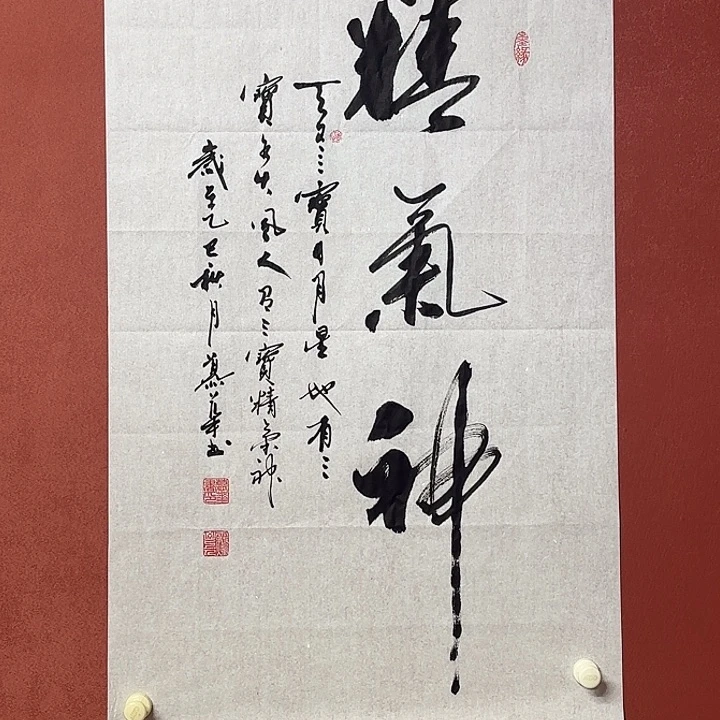 精氣神
天有三寶日月星地有三
寶水火風人有三寶精氣神
歲在乙巳秋月慕華书